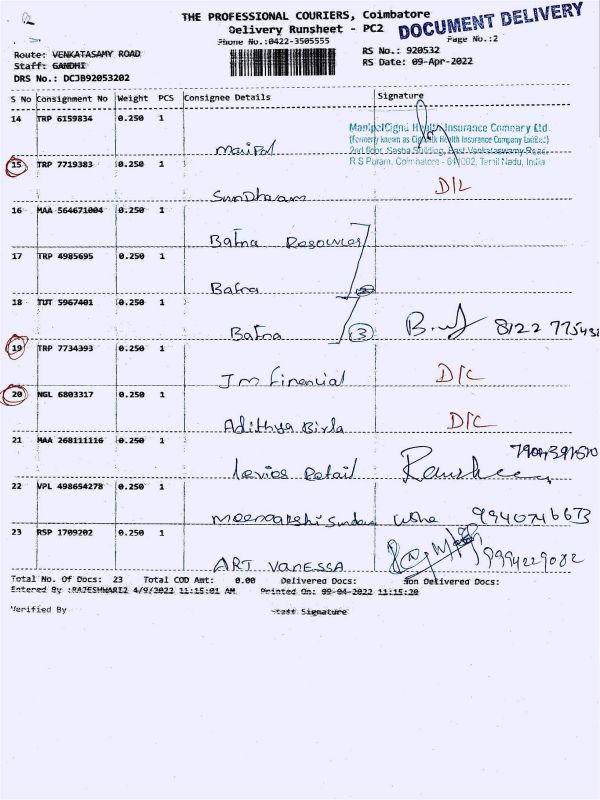 THE PROFESSIONAL COURIERS, Coimbatore
Delivery Runsheet - PC2
DOCUMENT DELIVERY
Phone No.:0422-3505555
Page No.:2
Route: VENKATASAMY ROAD
RS No.: 920532
Staff: GANDHI
RS Date: 09-Apr-2022
DRS No.: DCJB92053202
S No Consignment No Weight PCS Consignee Details Signature
14 TRP 6159834 0.250 1
ManipalCigna Health Insurance Company Ltd.
(formerly known as CignaTTK Health Insurance Company Limited)
2nd floor, Sasha Building, East Venkataswamy Road,
R S Puram, Coimbatore - 641002, Tamil Nadu, India
15 TRP 7719383 0.250 1
Sundharam D/L
16 MAA 564671004 0.250 1
Bafna Resources
17 TRP 4985695 0.250 1
Bafna
18 TUT 5967401 0.250 1
Bafna 3
19 TRP 7734393 0.250 1
Jm Financial D/C
20 NGL 6803317 0.250 1
Adithya Birla D/C
21 MAA 268111116 0.250 1
Levios Retail
22 VPL 498654278 0.250 1
Usha 9940746673
23 RSP 1709202 0.250 1
ART VANESSA 9994229082
Total No. Of Docs: 23 Total COD Amt: 0.00 Delivered Docs: Non Delivered Docs:
Entered By :RAJESHWARI2 4/9/2022 11:15:01 AM Printed On: 09-04-2022 11:15:20
Verified By Staff Signature